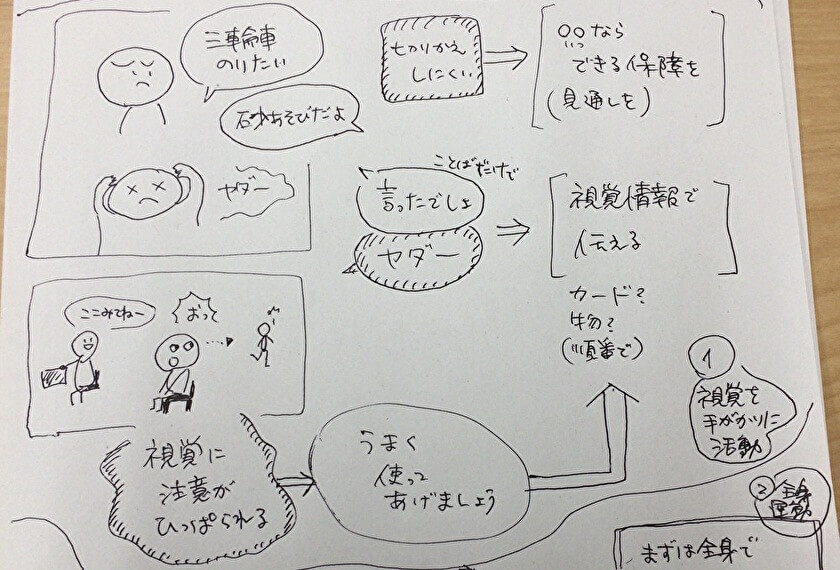 三輪車
のりたい
砂あそびだよ
ヤダー
切りかえ
しにくい
○○なら
いつ
できる保障を
(見通しを)
ことばだけで
言ったでしょ
ヤダー
視覚情報で
伝える
カード?
物?
(順番で)
ここみてねー
おって
視覚に
注意が
ひっぱられる
うまく
使って
あげましょう
1
視覚を
手がかりに
活動
2 全身
運動
まずは全身で